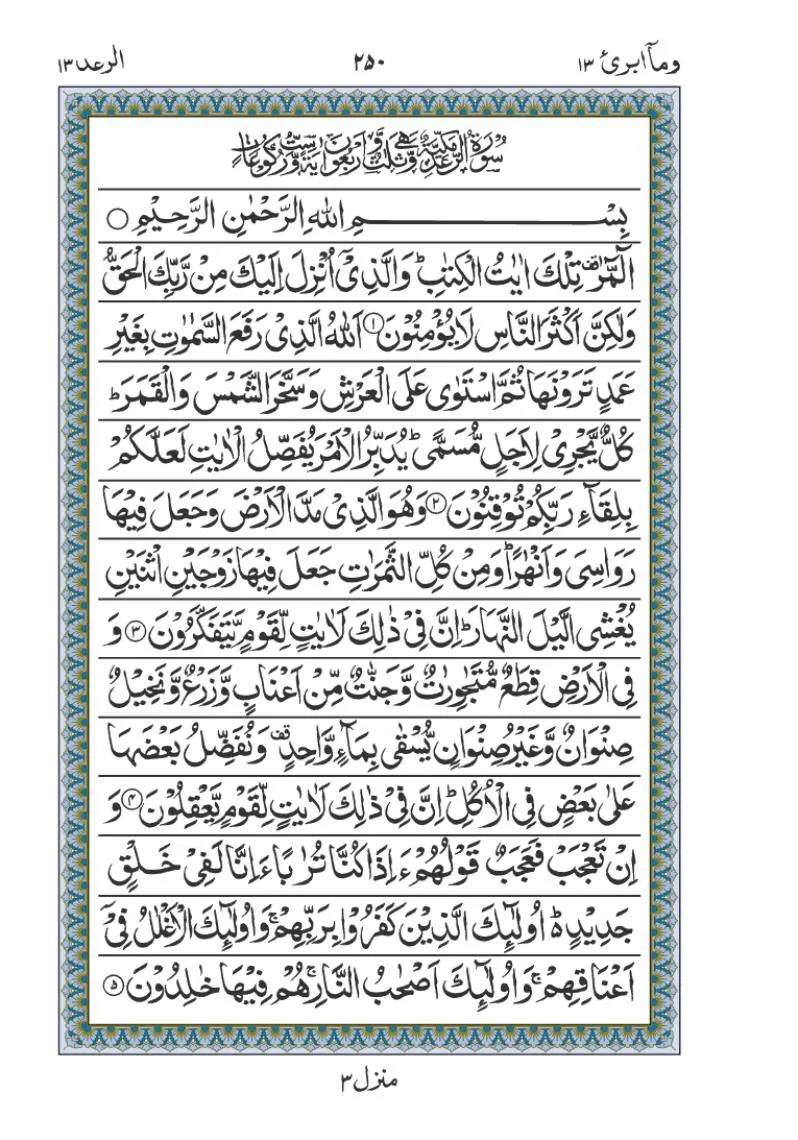 وماۤ ابرئ ١٣ ٢٥٠ الرعد ١٣
سُوْرَةُ الرَّعْدِ مَكِّيَّةٌ وَّهِيَ ثَلٰثٌ وَّاَرْبَعُوْنَ اٰيَةً وَّسِتُّ رُكُوْعَاتٍ
بِسْـــــــــــمِ اللّٰهِ الرَّحْمٰنِ الرَّحِيْمِ ○
الٓمّٓرٰ ۣ تِلْكَ اٰيٰتُ الْكِتٰبِ ؕ وَالَّذِيْۤ اُنْزِلَ اِلَيْكَ مِنْ رَّبِّكَ الْحَقُّ
وَلٰكِنَّ اَكْثَرَ النَّاسِ لَا يُؤْمِنُوْنَ ① اَللّٰهُ الَّذِيْ رَفَعَ السَّمٰوٰتِ بِغَيْرِ
عَمَدٍ تَرَوْنَهَا ثُمَّ اسْتَوٰى عَلَى الْعَرْشِ وَسَخَّرَ الشَّمْسَ وَالْقَمَرَ ؕ
كُلٌّ يَّجْرِيْ لِاَجَلٍ مُّسَمًّى ؕ يُدَبِّرُ الْاَمْرَ يُفَصِّلُ الْاٰيٰتِ لَعَلَّكُمْ
بِلِقَآءِ رَبِّكُمْ تُوْقِنُوْنَ ② وَهُوَ الَّذِيْ مَدَّ الْاَرْضَ وَجَعَلَ فِيْهَا
رَوَاسِيَ وَاَنْهٰرًا ؕ وَمِنْ كُلِّ الثَّمَرٰتِ جَعَلَ فِيْهَا زَوْجَيْنِ اثْنَيْنِ
يُغْشِي الَّيْلَ النَّهَارَ ؕ اِنَّ فِيْ ذٰلِكَ لَاٰيٰتٍ لِّقَوْمٍ يَّتَفَكَّرُوْنَ ③ وَ
فِي الْاَرْضِ قِطَعٌ مُّتَجٰوِرٰتٌ وَّجَنّٰتٌ مِّنْ اَعْنَابٍ وَّزَرْعٌ وَّنَخِيْلٌ
صِنْوَانٌ وَّغَيْرُ صِنْوَانٍ يُّسْقٰى بِمَآءٍ وَّاحِدٍ ۣ وَنُفَضِّلُ بَعْضَهَا
عَلٰى بَعْضٍ فِي الْاُكُلِ ؕ اِنَّ فِيْ ذٰلِكَ لَاٰيٰتٍ لِّقَوْمٍ يَّعْقِلُوْنَ ④ وَ
اِنْ تَعْجَبْ فَعَجَبٌ قَوْلُهُمْ ءَاِذَا كُنَّا تُرٰبًا ءَاِنَّا لَفِيْ خَلْقٍ
جَدِيْدٍ ؕ۬ اُولٰٓئِكَ الَّذِيْنَ كَفَرُوْا بِرَبِّهِمْ ۚ وَاُولٰٓئِكَ الْاَغْلٰلُ فِيْۤ
اَعْنَاقِهِمْ ۚ وَاُولٰٓئِكَ اَصْحٰبُ النَّارِ ۚ هُمْ فِيْهَا خٰلِدُوْنَ ⑤
منزل ٣